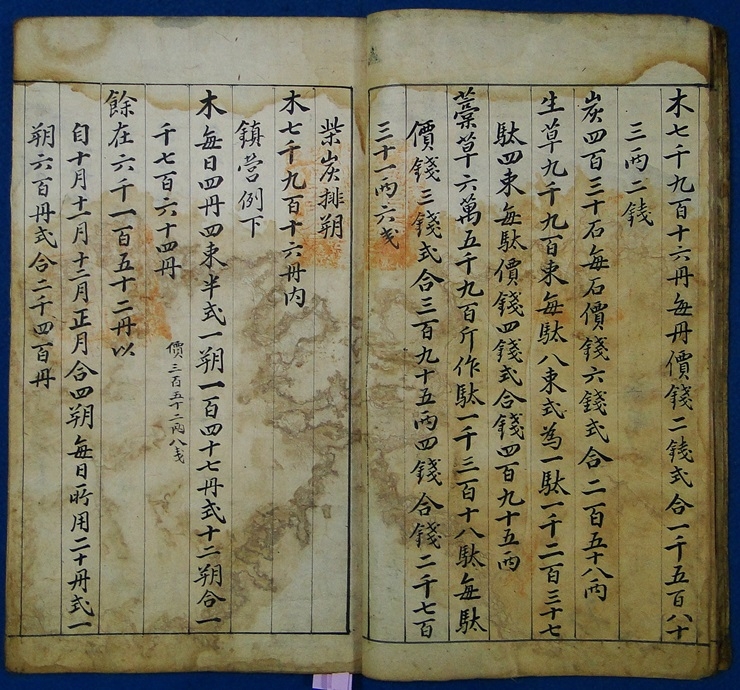 木七千九百十六丹每丹價錢二錢式合一千五百八十
三兩二錢
炭四百三十石每石價錢六錢式合二百五十八兩
生草九千九百束每駄八束式為一駄一千二百三十七
駄四束每駄價錢四錢式合錢四百九十五兩
藁草六萬五千九百斤作駄一千三百十八駄每駄
價錢三錢式合三百九十五兩四錢合錢二千七百
三十一兩六戔
柴炭排朔
木七千九百十六丹內
鎮營例下
木每日四丹四束半式一朔一百四十七丹式十二朔合一
千七百六十四丹
價三百五十二兩八戔
餘在六千一百五十二丹以
自十月十一月十二月正月合四朔每日所用二十丹式一
朔六百丹式合二千四百丹